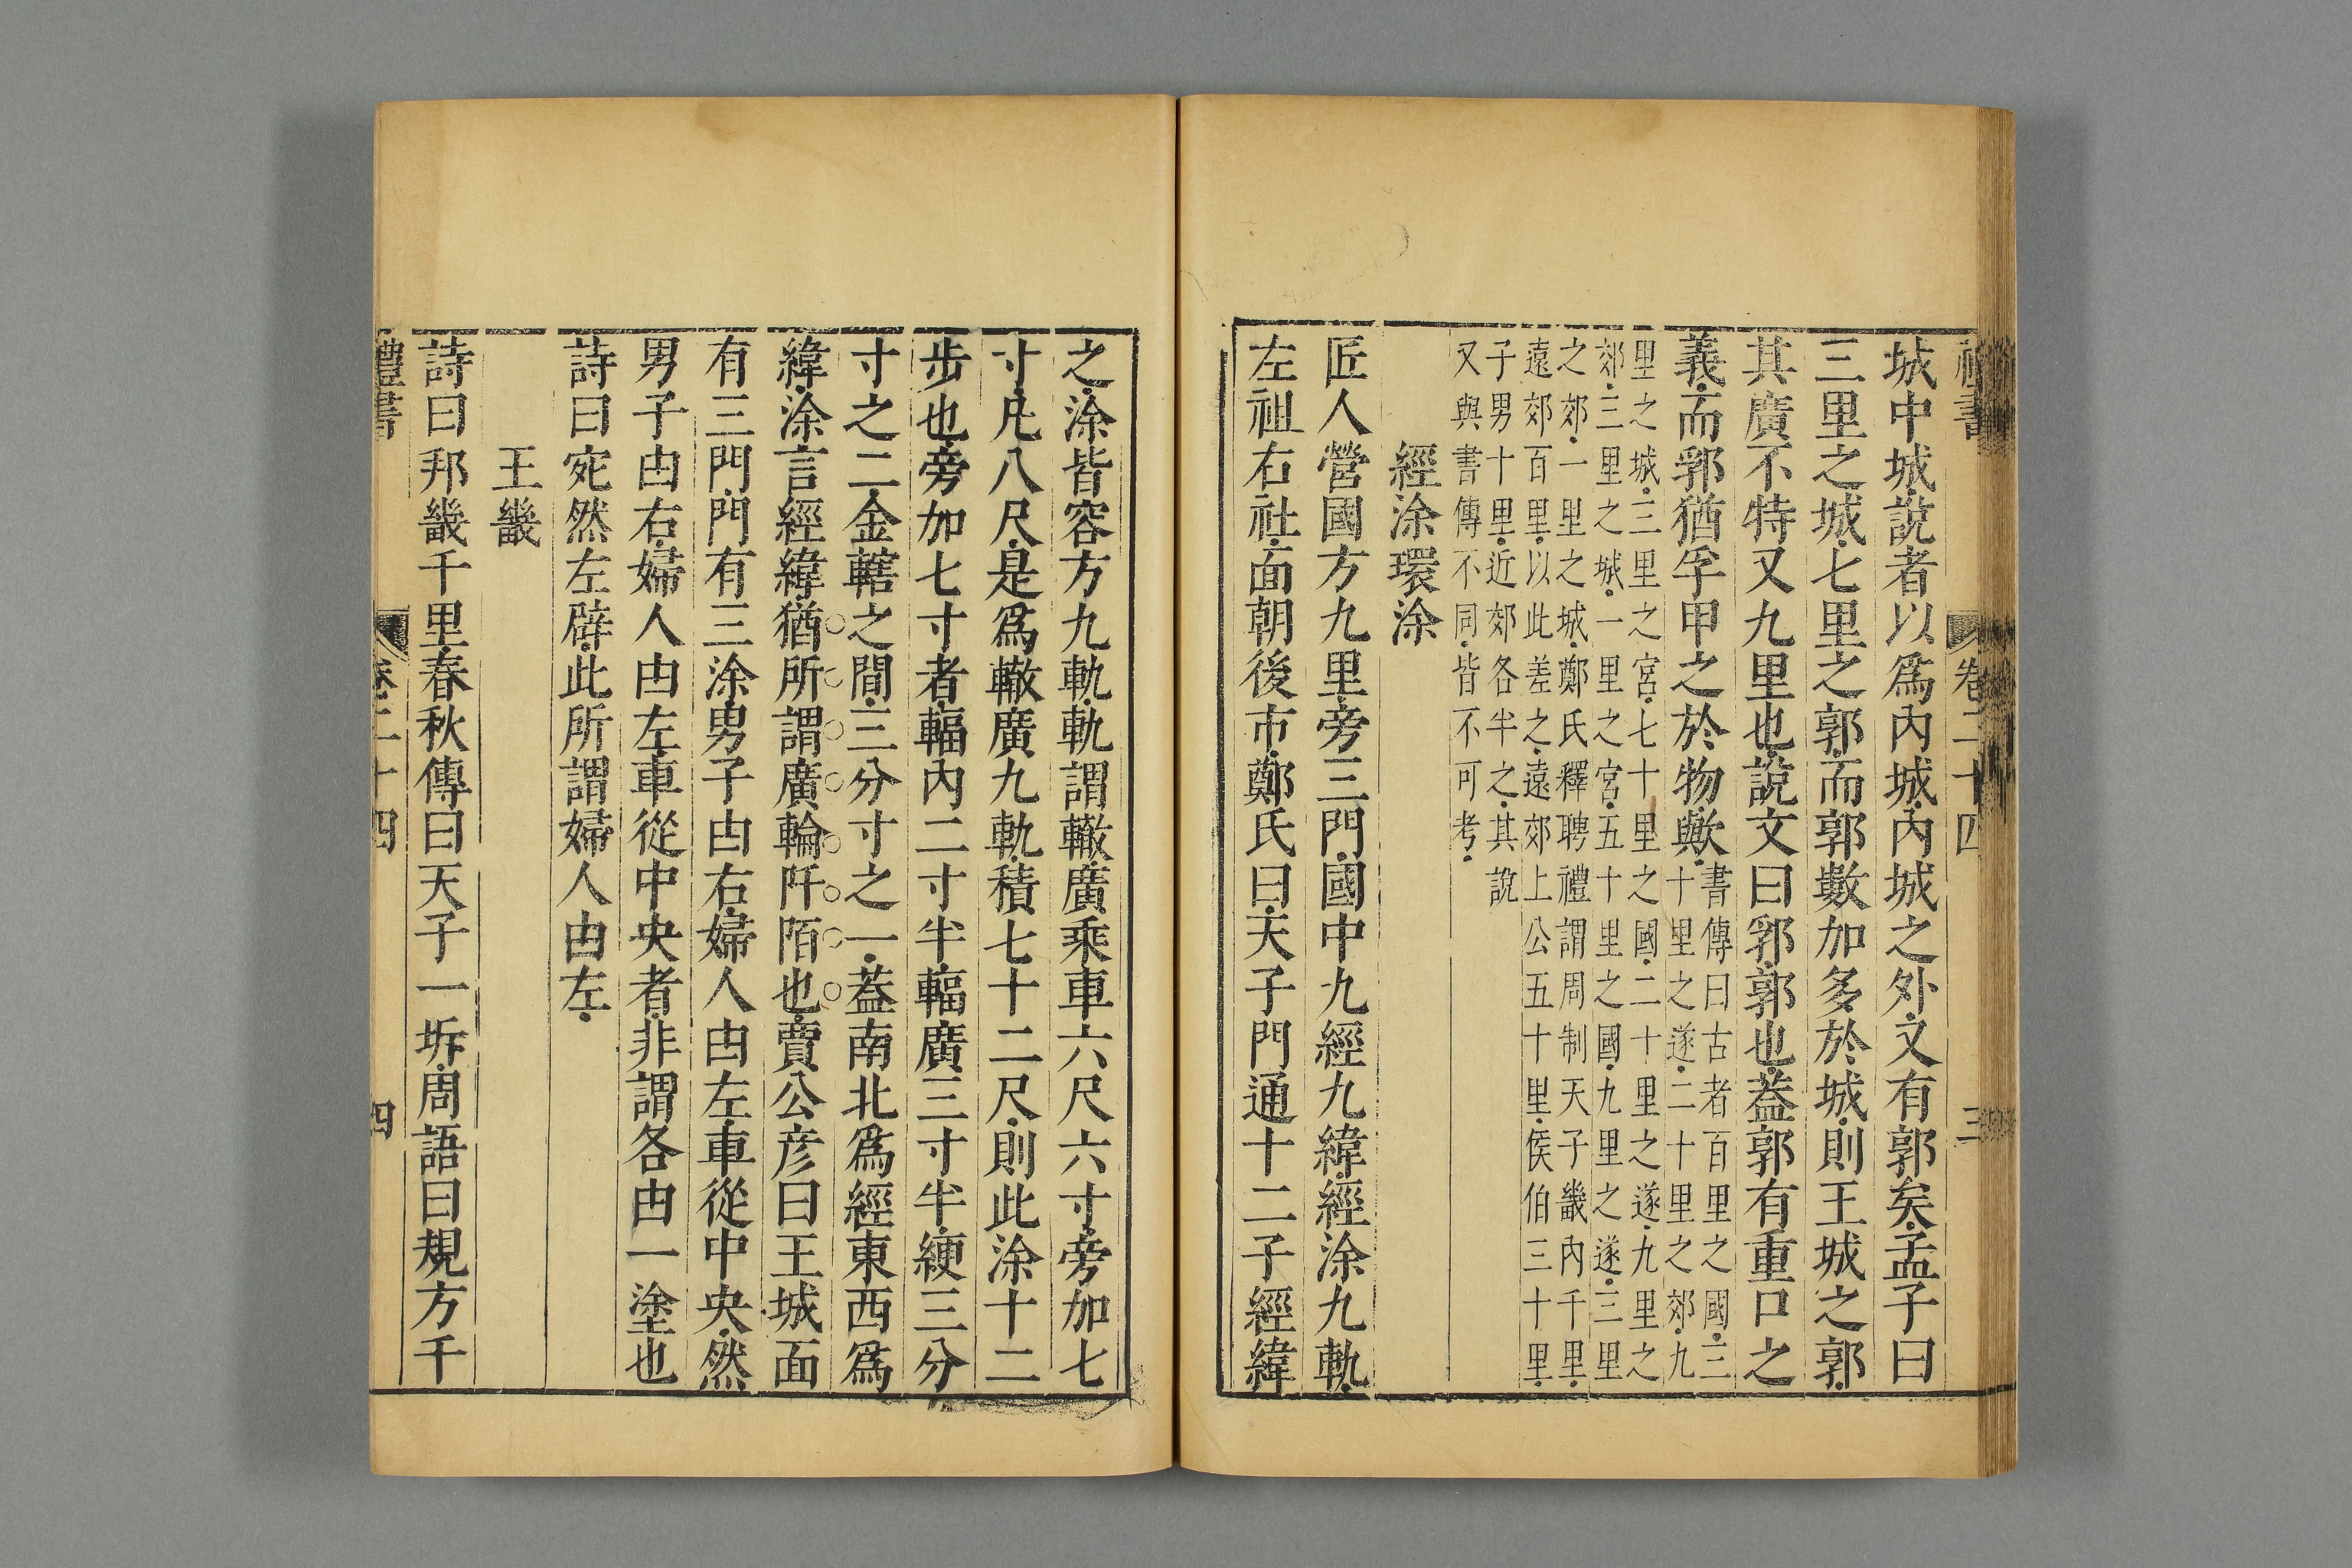 禮書
卷二十四
三
城中城說者以爲內城內城之外又有郭矣孟子曰
三里之城七里之郭而郭數加多於城則王城之郭
其廣不特又九里也說文曰郛郭也葢郭有重口之
義而郛猶孚甲之於物歟書傳曰古者百里之國三
十里之遂二十里之郊九
里之城三里之宮七十里之國二十里之遂九里之
郊三里之城一里之宮五十里之國九里之遂三里
之郊一里之城鄭氏釋聘禮謂周制天子畿內千里
遠郊百里以此差之遠郊上公五十里侯伯三十里
子男十里近郊各半之其說
又與書傳不同皆不可考
經涂環涂
匠人營國方九里旁三門國中九經九緯經涂九軌
左祖右社面朝後市鄭氏曰天子門通十二子經緯
之涂皆容方九軌軌謂轍廣乘車六尺六寸旁加七
寸凡八尺是爲轍廣九軌積七十二尺則此涂十二
步也旁加七寸者輻內二寸半輻廣三寸半綆三分
寸之二金轄之間三分寸之一葢南北爲經東西爲
緯涂言經緯猶所謂廣輪阡陌也賈公彦曰王城面
有三門門有三涂男子由右婦人由左車從中央然
男子由右婦人由左車從中央者非謂各由一塗也
詩曰宛然左辟此所謂婦人由左
王畿
詩曰邦畿千里春秋傳曰天子一圻周語曰規方千
禮書
卷二十四
四